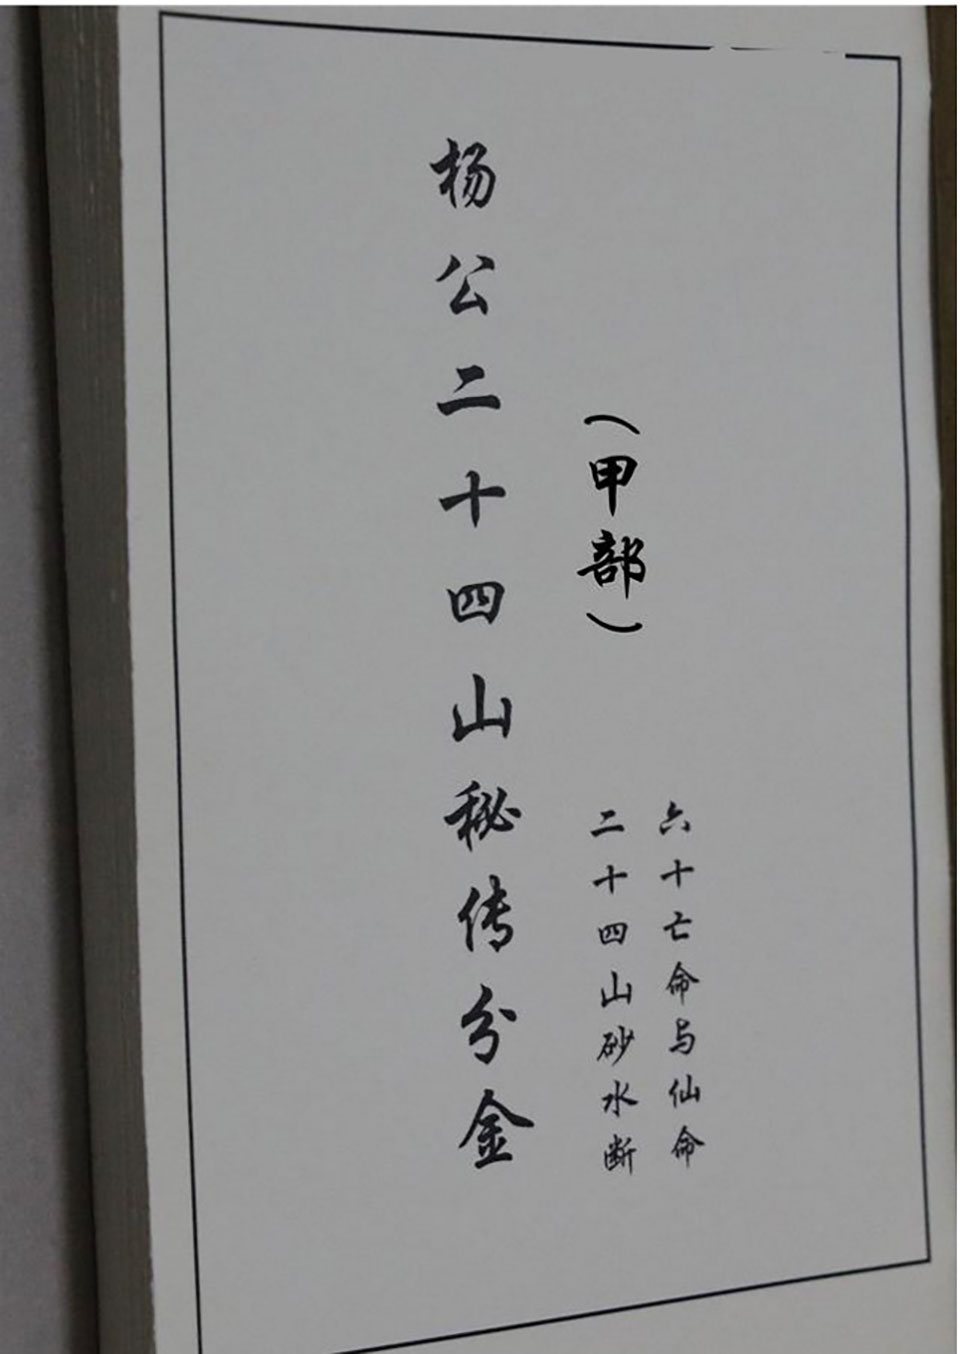 六十亡命与仙命
二十四山砂水断
（甲部）
杨公二十四山秘传分金